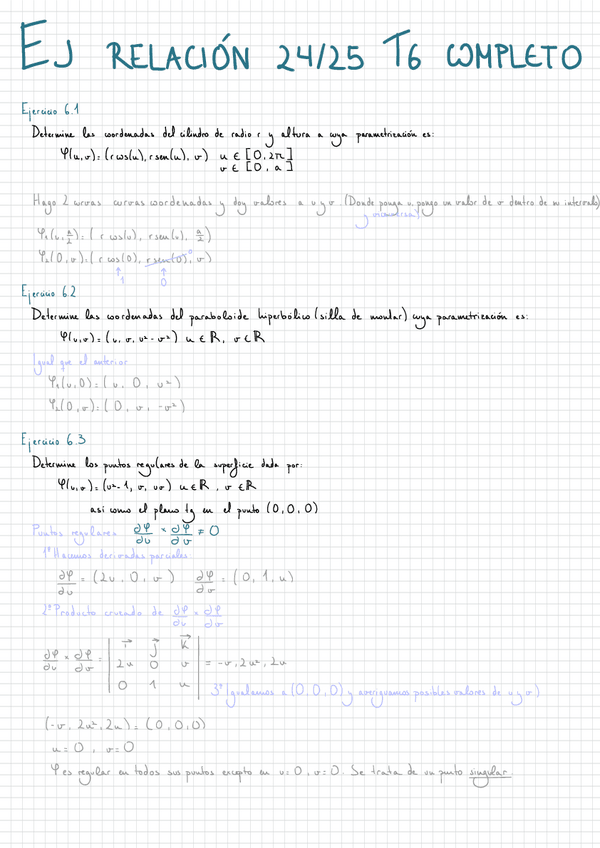 EJ RELACIÓN 24/25 T6 COMPLETO
Ejercicio 6.1
Determine las coordenadas del cilindro de radio r y altura a cuya parametrización es:
φ(u,v)=(r cos(u), r sen(u), v) u ∈ [0,2π]
v ∈ [0,a]
Hago 2 curvas curvas coordenadas y doy valores a u y v (Donde ponga v, pongo un valor de v dentro de su intervalo)
φ₁(u,a/2)=(r cos(u), r sen(u), a/2)
φ₂(0,v)=(r cos(0), r sen(0), v)
↑ ↑
1 0
Ejercicio 6.2
Determine las coordenadas del paraboloide hiperbólico (silla de montar) cuya parametrización es:
φ(u,v)=(u, v, u²-v²) u ∈ ℝ, v ∈ ℝ
Igual que el anterior
φ₁(u,0)=(u, 0, u²)
φ₂(0,v)=(0, v, -v²)
Ejercicio 6.3
Determine los puntos regulares de la superficie dada por:
φ(u,v)=(u²-1, v, uv) u ∈ ℝ, v ∈ ℝ
así como el plano tg en el punto (0,0,0)
Puntos regulares ∂φ/∂u × ∂φ/∂v ≠ 0
1º Hacemos derivadas parciales
∂φ/∂u = (2u, 0, v) ∂φ/∂v = (0, 1, u)
2º Producto cruzado de ∂φ/∂u × ∂φ/∂v
i j k
∂φ/∂u × ∂φ/∂v = | 2u 0 v | = -v, 2u², 2u
0 1 u
3º Igualamos a (0,0,0) y averiguamos posibles valores de u y v)
(-v, 2u², 2u) = (0,0,0)
u=0, v=0
φ es regular en todos sus puntos excepto en u=0, v=0. Se trata de un punto singular.